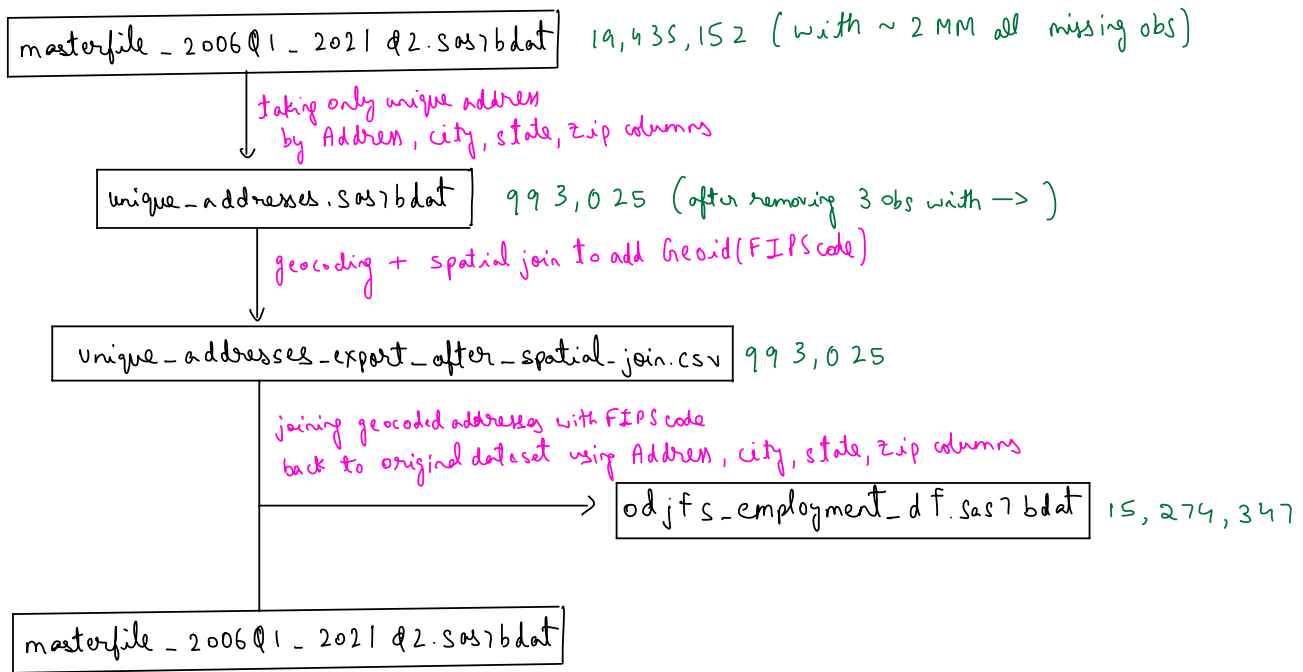 masterfile_2006Q1_2021Q2.sas7bdat 19,435,152 (with ~ 2 MM all missing obs)
taking only unique address
by Address, city, state, zip columns
unique_addresses.sas7bdat 993,025 (after removing 3 obs with → )
geocoding + spatial join to add Geoid(FIPS code)
unique_addresses_export_after_spatial_join.csv 993,025
joining geocoded addresses with FIPS code
back to original dataset using Address, city, state, zip columns
odjfs_employment_df.sas7bdat 15,274,347
masterfile_2006Q1_2021Q2.sas7bdat